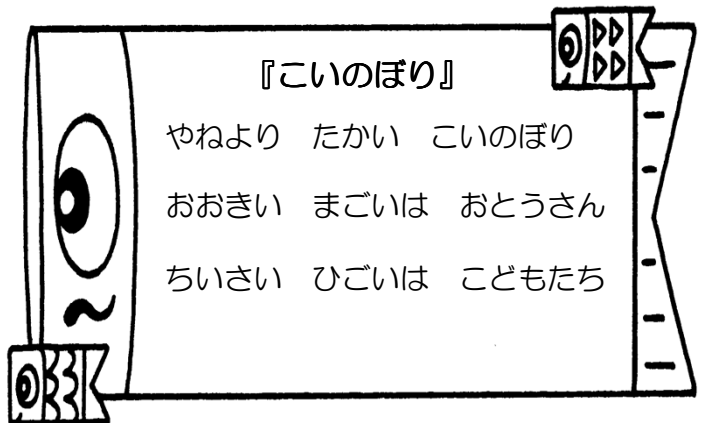 『こいのぼり』
やねより　たかい　こいのぼり
おおきい　まごいは　おとうさん
ちいさい　ひごいは　こどもたち